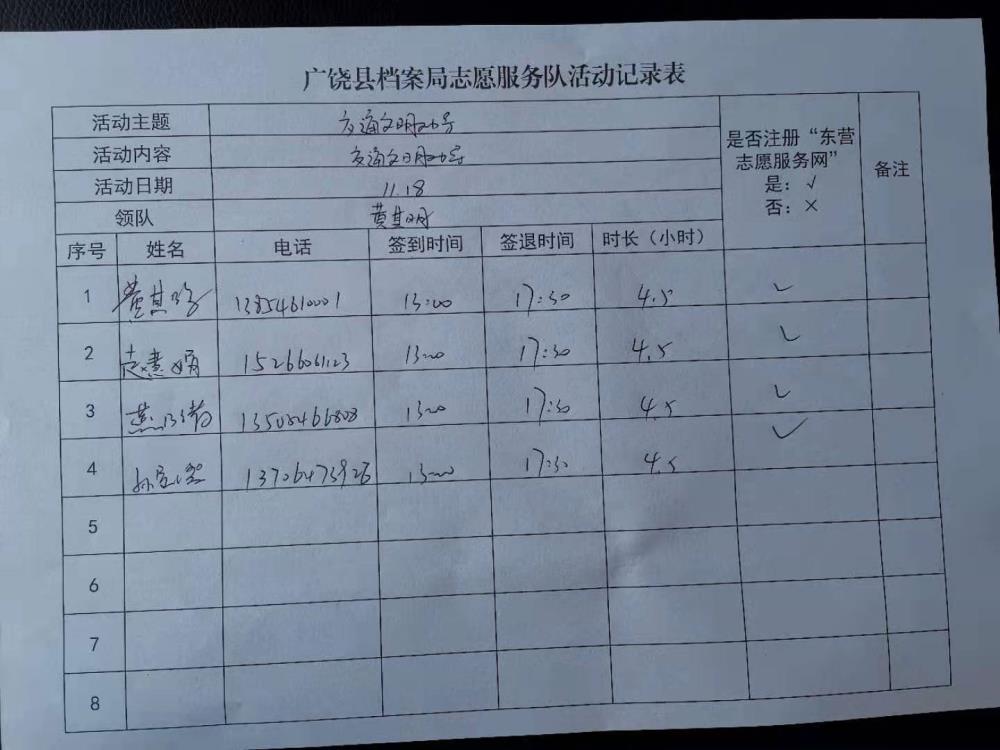 广饶县档案局志愿服务队活动记录表
活动主题 交通文明劝导
活动内容 交通文明劝导
活动日期 11.18
领队 黄其明
是否注册“东营志愿服务网”
是：√
否：×
备注
序号 姓名 电话 签到时间 签退时间 时长（小时）
1 黄其明 13854610001 13:00 17:30 4.5 ✓
2 15266061123 13:00 17:30 4.5 ✓
3 13505466808 13:00 17:30 4.5 ✓
4 13706473926 13:00 17:30 4.5 ✓
5
6
7
8